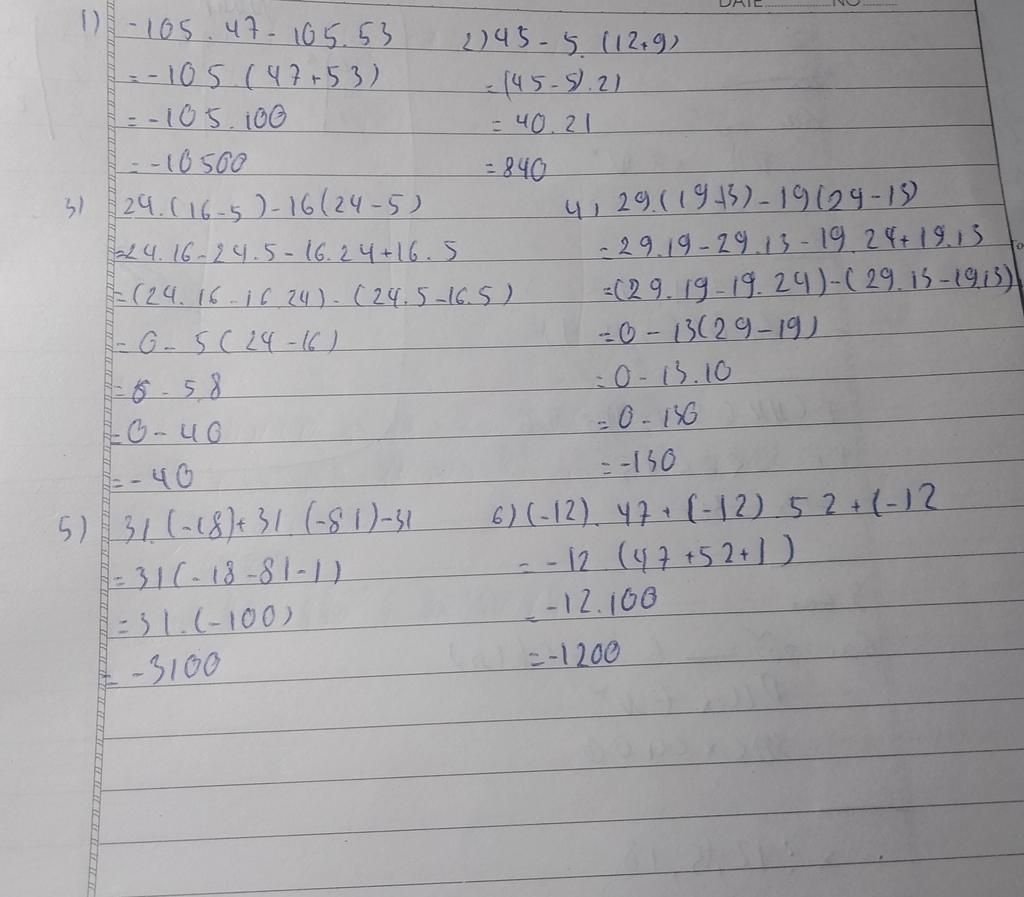 DATE NO
1) -105.47-105.53
=-105(47+53)
=-105.100
=-10500
2) 45-5.(12+9)
=(45-5).21
=40.21
=840
3) 24.(16-5)-16(24-5)
=24.16-24.5-16.24+16.5
=(24.16-16.24)-(24.5-16.5)
=0-5(24-16)
=0-5.8
=0-40
=-40
4) 29.(19-13)-19(29-13)
=29.19-29.13-19.29+19.13
=(29.19-19.29)-(29.13-19.13)
=0-13(29-19)
=0-13.10
=0-130
=-130
5) 31.(-18)+31.(-81)-31
=31(-18-81-1)
=31.(-100)
=-3100
6) (-12).47+(-12).52+(-12
=-12(47+52+1)
=-12.100
=-1200